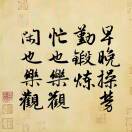 早晚操劳
勤鍛煉
忙也樂觀
閑也樂觀